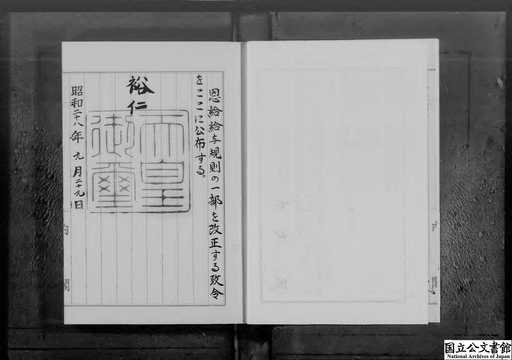 恩給給与規則の一部を改正する政令
をここに公布する。
裕仁
天皇
御璽
昭和二十八年九月二十九日
国立公文書館
National Archives of Japan